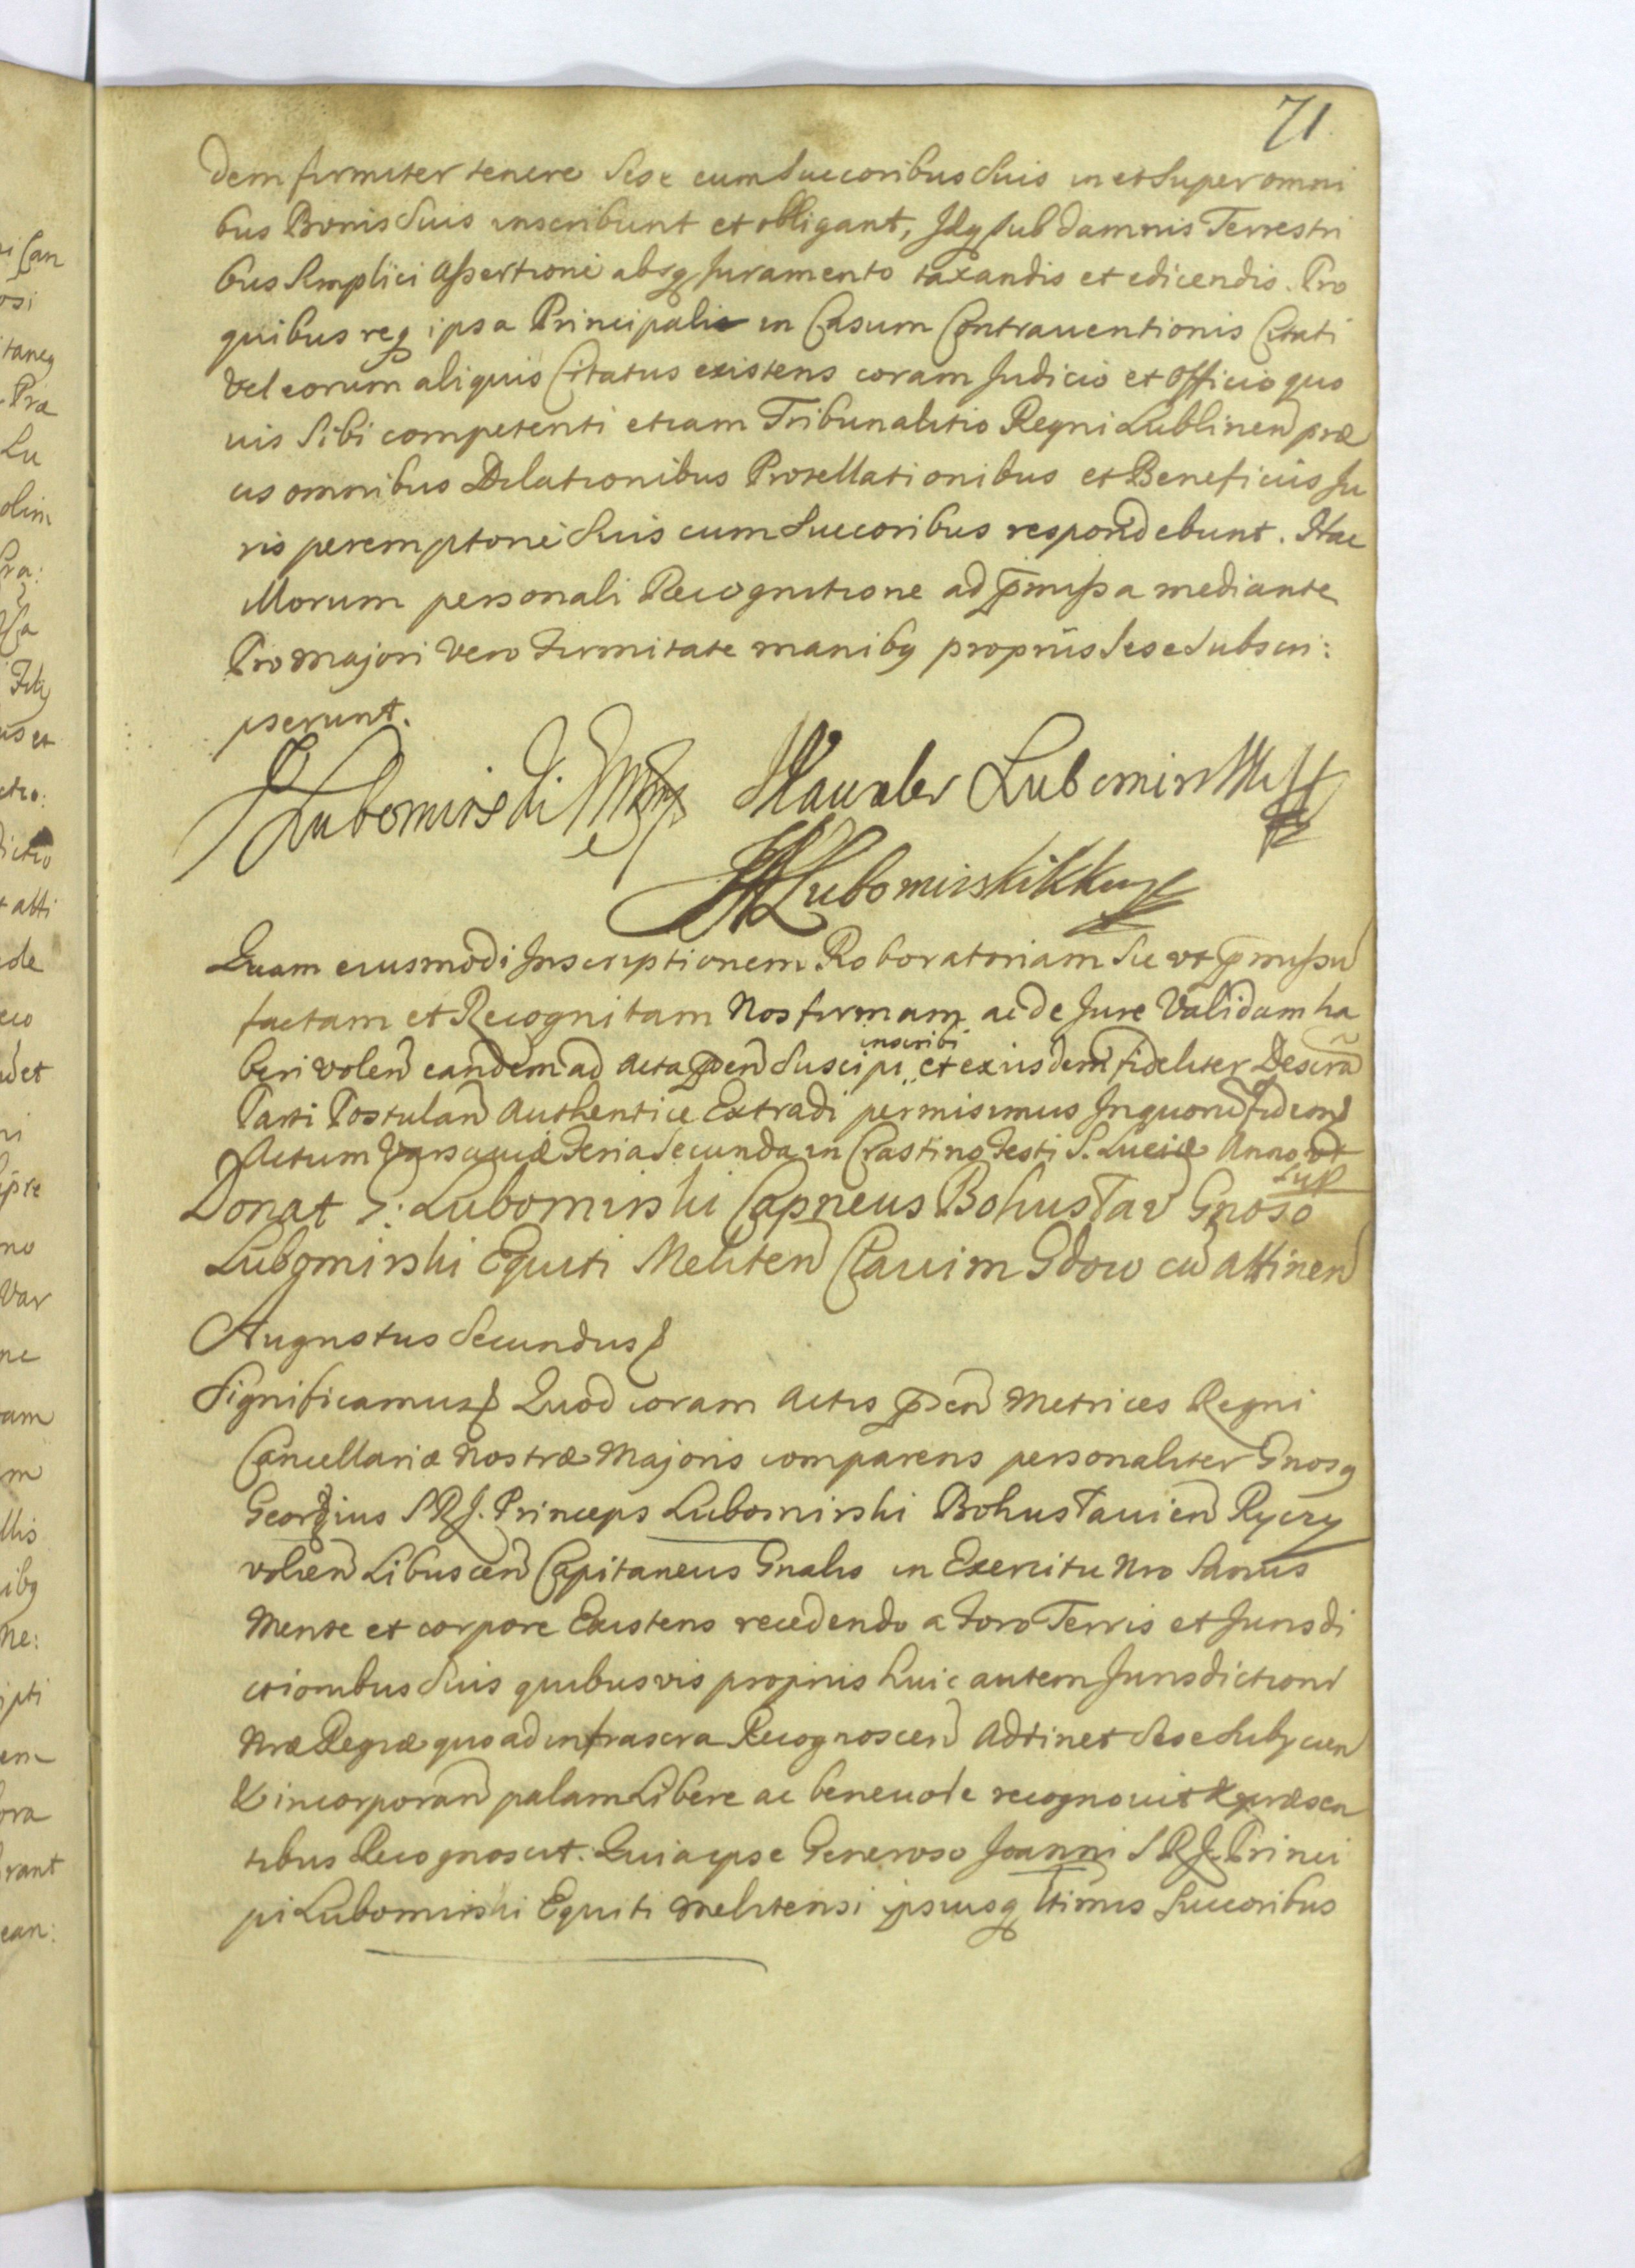 71
dem firmiter tenere Sese cum Succoribus Suis in et Super omni
bus Bonis Suis inscribunt et obligant, Idq sub damnis Terrestri
bus Simplici Assertione absq Juramento taxandis et edicendis. Pro
quibus req ipsa Principali in Casum Contrauentionis Citati
Vel eorum aliquis Citatus existens coram Judicio et Officio quo
uis Sibi competenti etiam Tribunalitio Regni Lublinen præ
cis omnibus Dilationibus Protellationibus et Beneficiis Ju
ris peremptorie Suis cum Succoribus respondebunt. Hac
Illorum personali Recognitione ad p̄missa mediante
Pro majori Vero Firmitate manibq propriis Sese Subscri:
pserunt.
Lubomirski
Lubomirski
Lubomirski
Quam eiusmodi Inscriptionem Roboratoriam Sic vt p̄missu
factam et Recognitam Nos firmam ac de Jure Validam ha
beri volen eandem ad Acta p̄den Suscipi inscribi et exiisdem fideliter Descrã
Parti Postulan Authentice Extradi permisimus In quorũ fidem
Actum Varsauiæ Feria Secunda in Crastino Festi S. Luciæ Anno vt
Sup
Donat G: Lubomirski Capneus Bohuslav Gnoso
Lubomirski Equiti Meliten Clauim Gdow cũ attinen
Augustus Secundus
Significamus Quod coram Actis p̄den Metrices Regni
Cancellariæ Nostræ Majoris comparens personaliter Gnosq
Georgius S R J. Princeps Lubomirski Bohuslauien Ryczy
volien Libuscen Capitaneus Gnalis in Exercitu Nro Sanus
Mente et corpore Existens recedendo a Foro Terris et Jurisdi
ctionibus Suis quibusvis propriis huic autem Jurisdictioni
Nræ Regiæ quo ad infrascra Recognoscen Adtinet Sese Subijcien
& incorporan palam Libere ac beneuole recognouit & præsen
tibus Recognoscit. Quia ipse Generoso Joanni S R J. Princi
pi Lubomirski Equiti Melitensi ipsiusq ltimis Succoribus